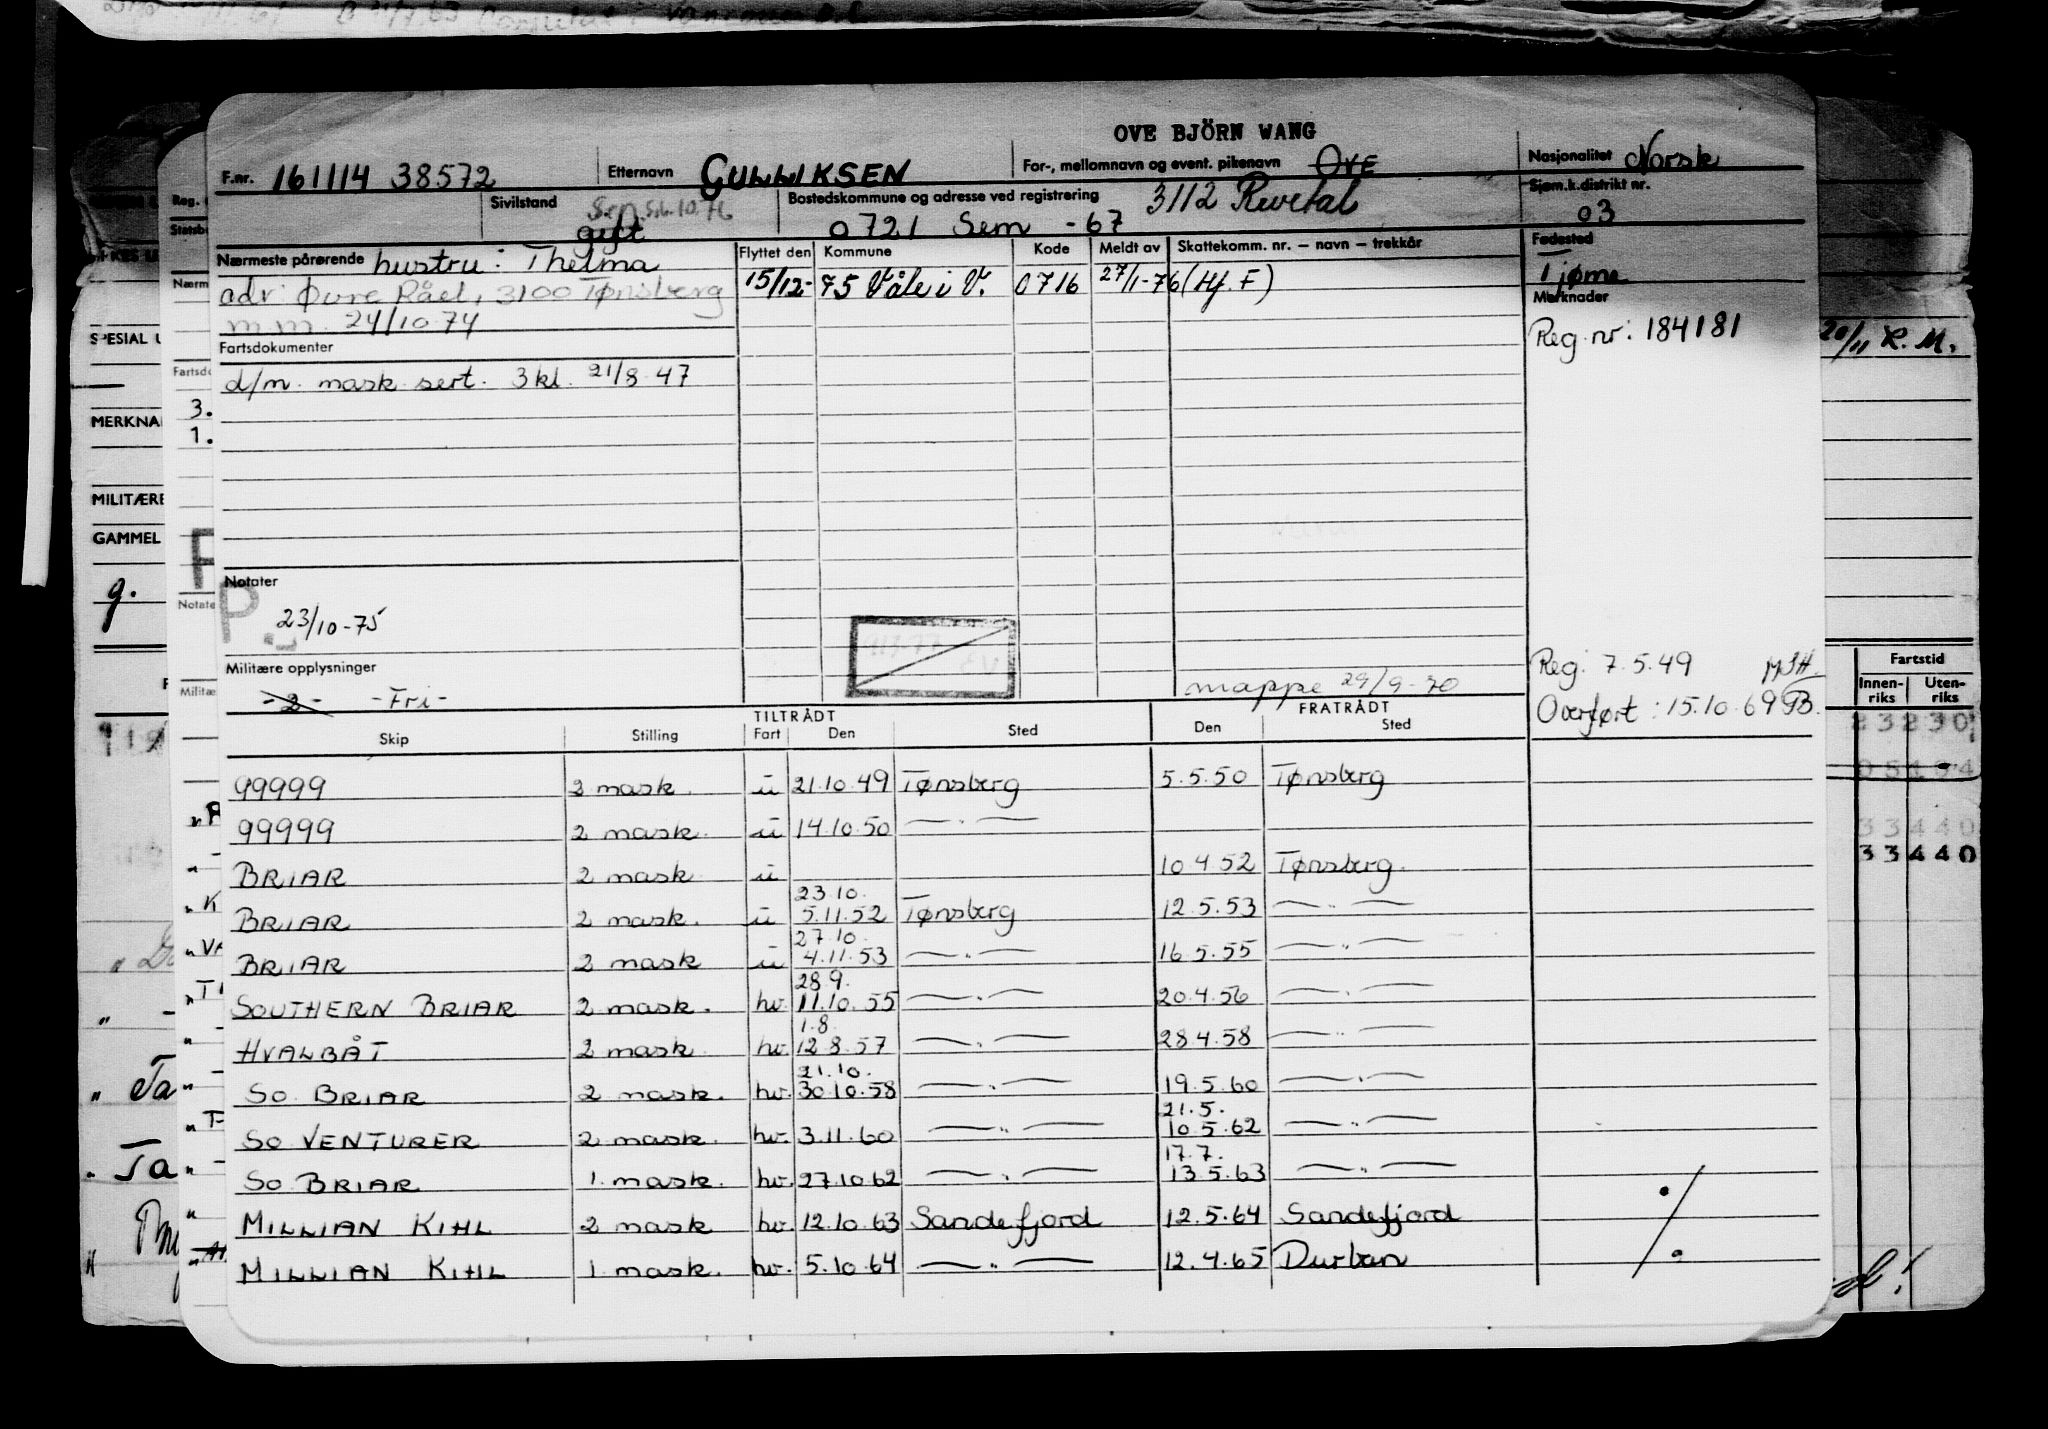 OVE BJÖRN WANG
F.nr. 161114 38572 Etternavn GULLIKSEN For-, mellomnavn og event. pikenavn OVE Nasjonalitet Norsk
Sivilstand gift Bostedskommune og adresse ved registrering 0721 Sem -67 3112 Revetal Sjøm.k.distrikt nr. 03
Nærmeste pårørende hustru: Thelma Flyttet den Kommune Kode Meldt av Skattekomm. nr. – navn – trekkår Fødested
adr: Øvre Råel, 3100 Tønsberg 15/12- 75 Våle i V. 0716 27/1-76 (Hj. F) Tjøme
m.m. 24/10-74 Merknader
Fartsdokumenter Reg. nr: 184181
d/m. mask. sert. 3 kl. 21/8-47
Notater
23/10-75
Militære opplysninger
-2- -Fri- mappe 29/9-70
Reg: 7.5.49
Overført: 15.10.69
TILTRÅDT FRATRÅDT
Skip Stilling Fart Den Sted Den Sted
99999 2 mask. u 21.10.49 Tønsberg 5.5.50 Tønsberg
99999 2 mask. u 14.10.50 — „ —
BRIAR 2 mask u 10.4.52 Tønsberg.
23.10.
BRIAR 2 mask. u 5.11.52 Tønsberg 12.5.53 — „ —
27.10.
BRIAR 2 mask u 4.11.53 — „ — 16.5.55 — „ —
28.9.
SOUTHERN BRIAR 2 mask. hv. 11.10.55 — „ — 20.4.56 — „ —
1.8.
HVALBÅT 2 mask. hv. 12.8.57 — „ — 28.4.58 — „ —
21.10.
SO. BRIAR 2 mask. hv. 30.10.58 — „ — 19.5.60 — „ —
21.5.
SO VENTURER 2 mask. hv. 3.11.60 — „ — 10.5.62 — „ —
17.7.
SO BRIAR 1. mask. hv. 27.10.62 — „ — 13.5.63 — „ —
MILLIAN KIHL 2 mask hv. 12.10.63 Sandefjord 12.5.64 Sandefjord
MILLIAN KIHL 1 mask. hv. 5.10.64 — „ — 12.4.65 Durban
Reg.
Statsb
Nærm
SPESIAL
MERKNA
3.
1.
MILITÆRE
GAMMEL
g.
Notate
Militæ
20/11 K. M.
Fartstid
Innen-riks Uten-riks
23230
05194
33440
33440